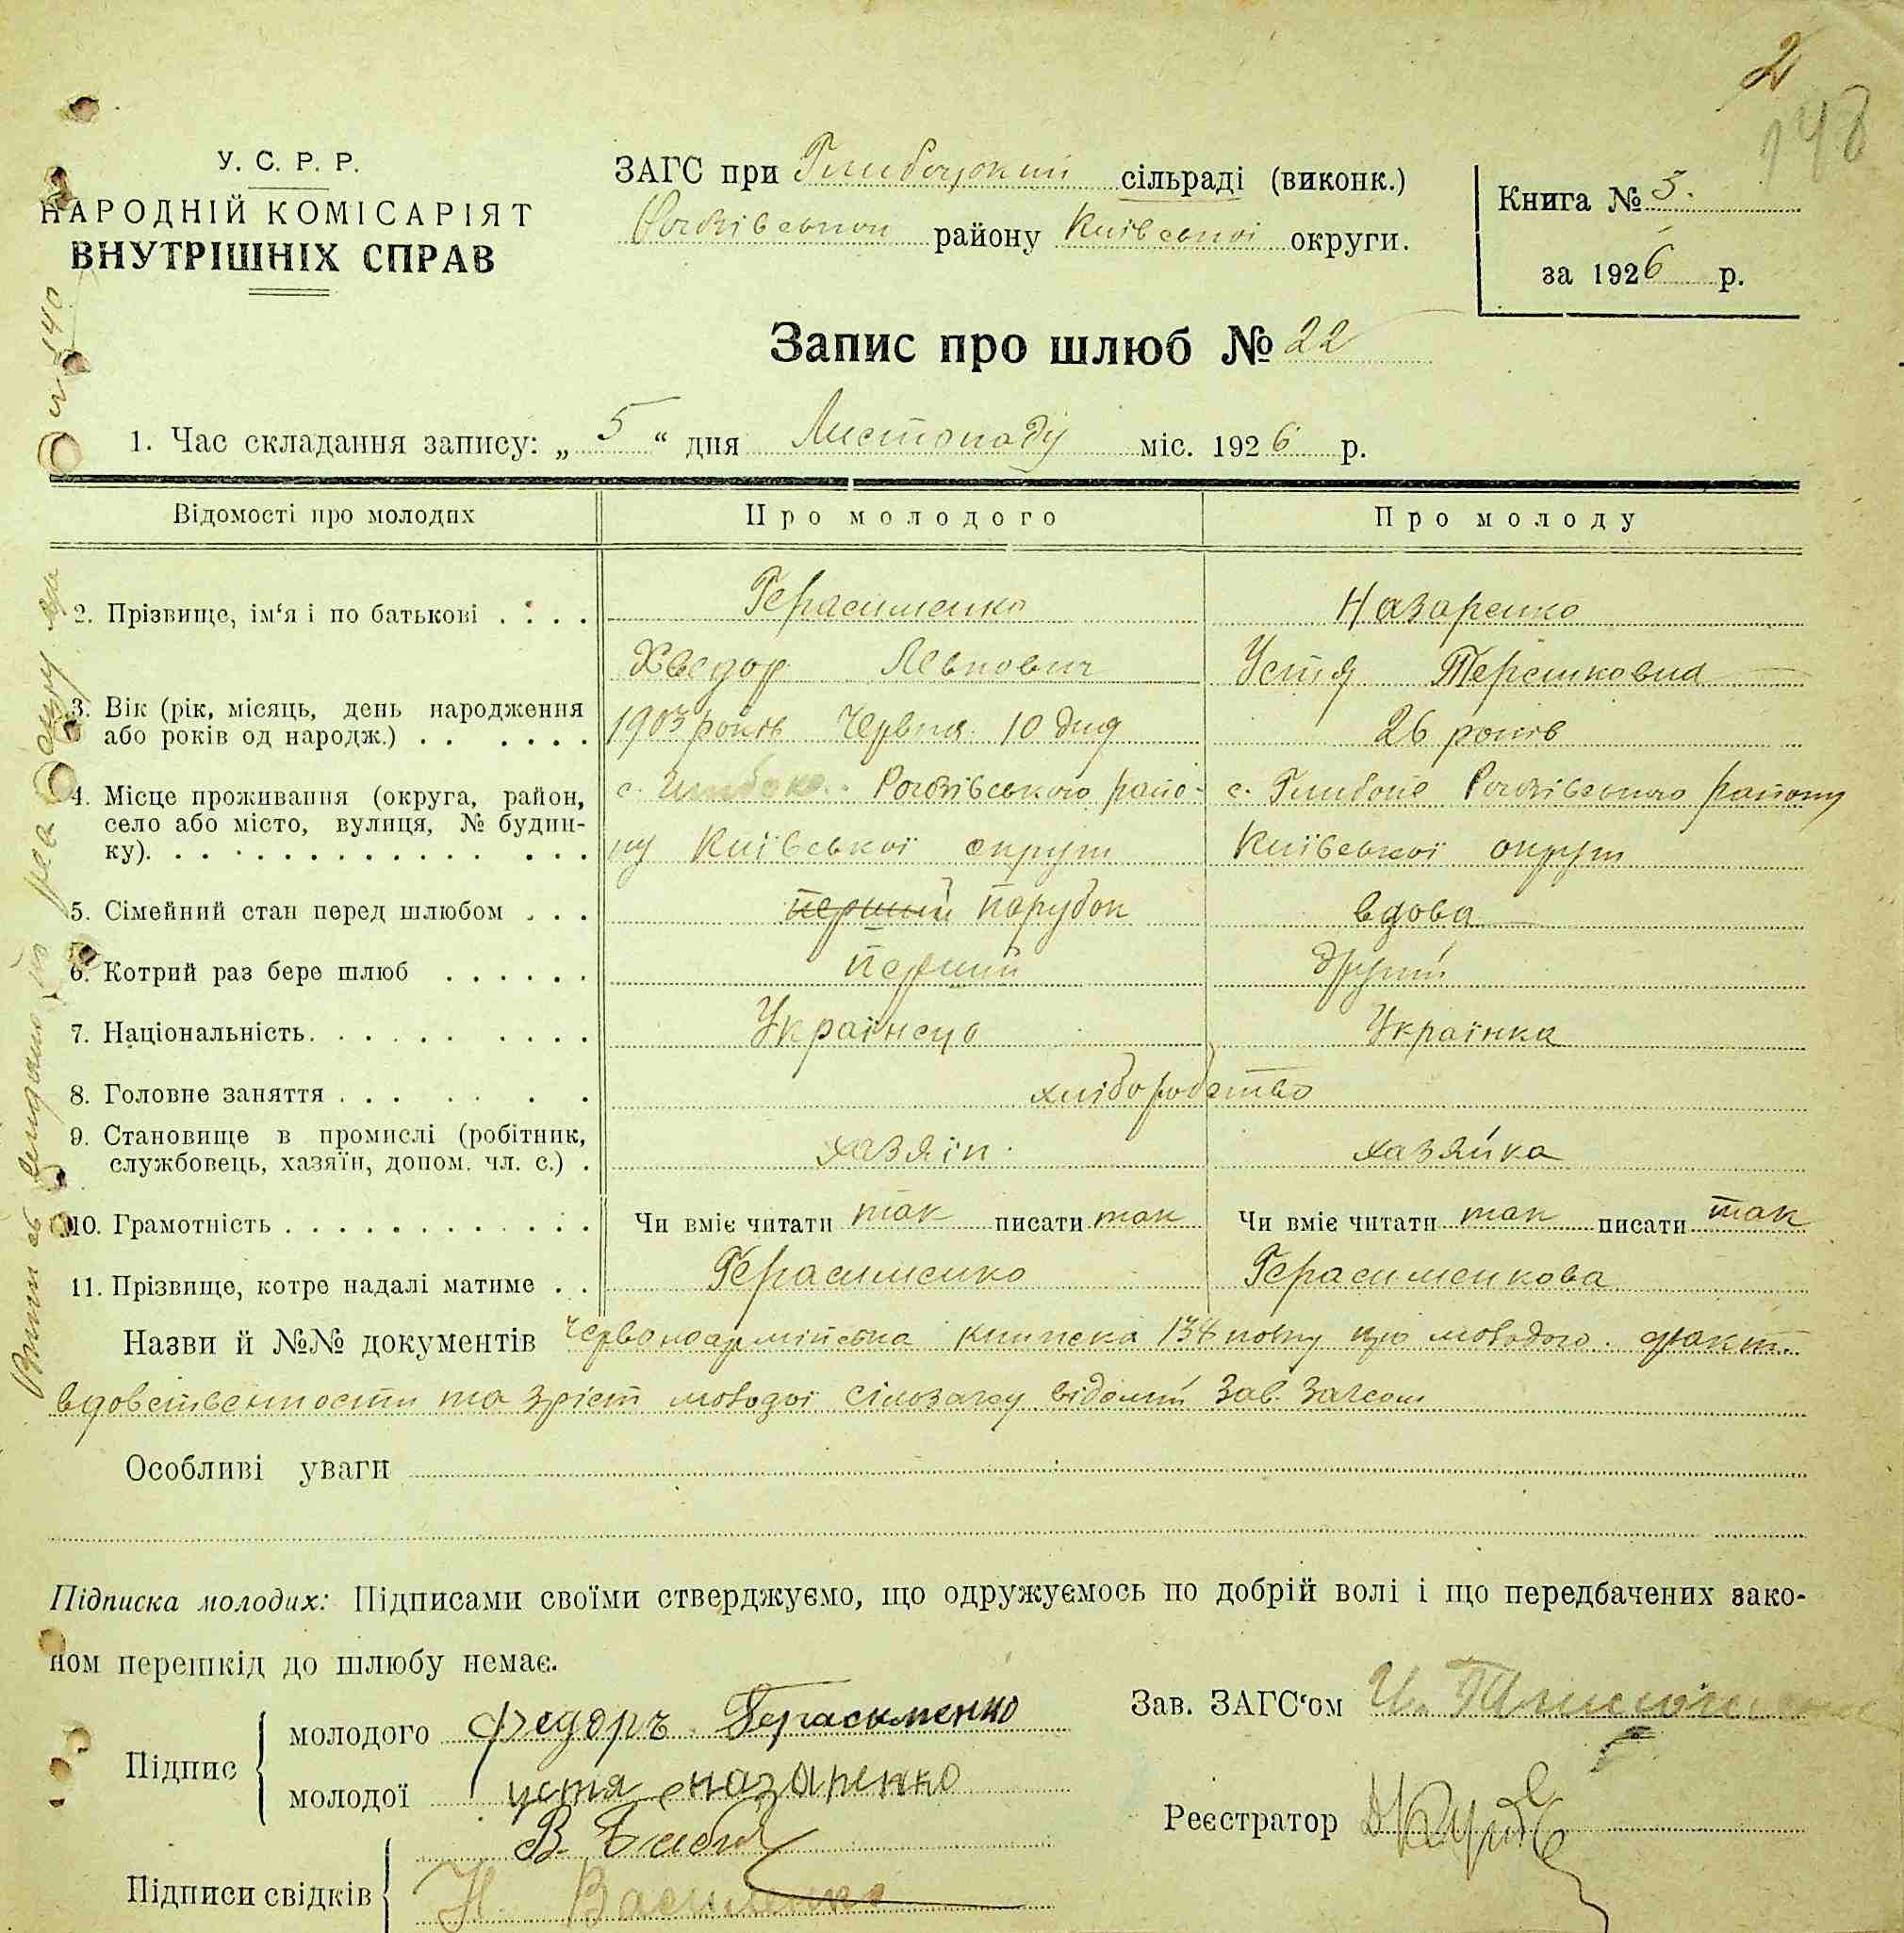 2
148
У. С. Р. Р.
НАРОДНІЙ КОМІСАРІЯТ
ВНУТРІШНІХ СПРАВ
ЗАГС при Глибоцькій сільраді (виконк.)
району Київської округи.
Книга № 5.
за 1926 р.
Запис про шлюб № 22
1. Час складання запису: „ 5 “ дня Листопаду міс. 1926 р.
Відомості про молодих
Про молодого
Про молоду
2. Прізвище, ім‘я і по батькові . . . .
Герасименко
Назаренко
Хведор Левкович
Устя Терешковна
3. Вік (рік, місяць, день народження
або років од народж.) . . . . . .
1903 років Червня 10 дня
26 років
4. Місце проживання (округа, район,
село або місто, вулиця, № будин-
ку). . . . . . . . . . . . . . .
с. Глибоке Рогозівського райо-
ну Київської округи
с. Глибоке Рогозівського району
Київської округи
5. Сімейний стан перед шлюбом . . .
перший парубок
вдова
6. Котрий раз бере шлюб . . . . . .
перший
другий
7. Національність. . . . . . . . . .
Українець
Українка
8. Головне заняття . . . . . . .
хліборобство
9. Становище в промислі (робітник,
службовець, хазяїн, допом. чл. с.) .
хазяїн.
хазяйка
10. Грамотність . . . . . . . . . . . .
Чи вміє читати так писати так
Чи вміє читати так писати так
11. Прізвище, котре надалі матиме . .
Герасименко
Герасименкова
Назви й №№ документів Червоноармійська книжка 138 полку про молодого. факт
вдовственности та зріст молодої відомий Зав. Загсом
Особливі уваги
Підписка молодих: Підписами своїми стверджуємо, що одружуємось по добрій волі і що передбачених зако-
ном перешкід до шлюбу немає.
Підпис
молодого Федоръ Герасименко
молодої устя назаренко
Зав. ЗАГС‘ом
Реєстратор
Підписи свідків
В.
Н. Василенко